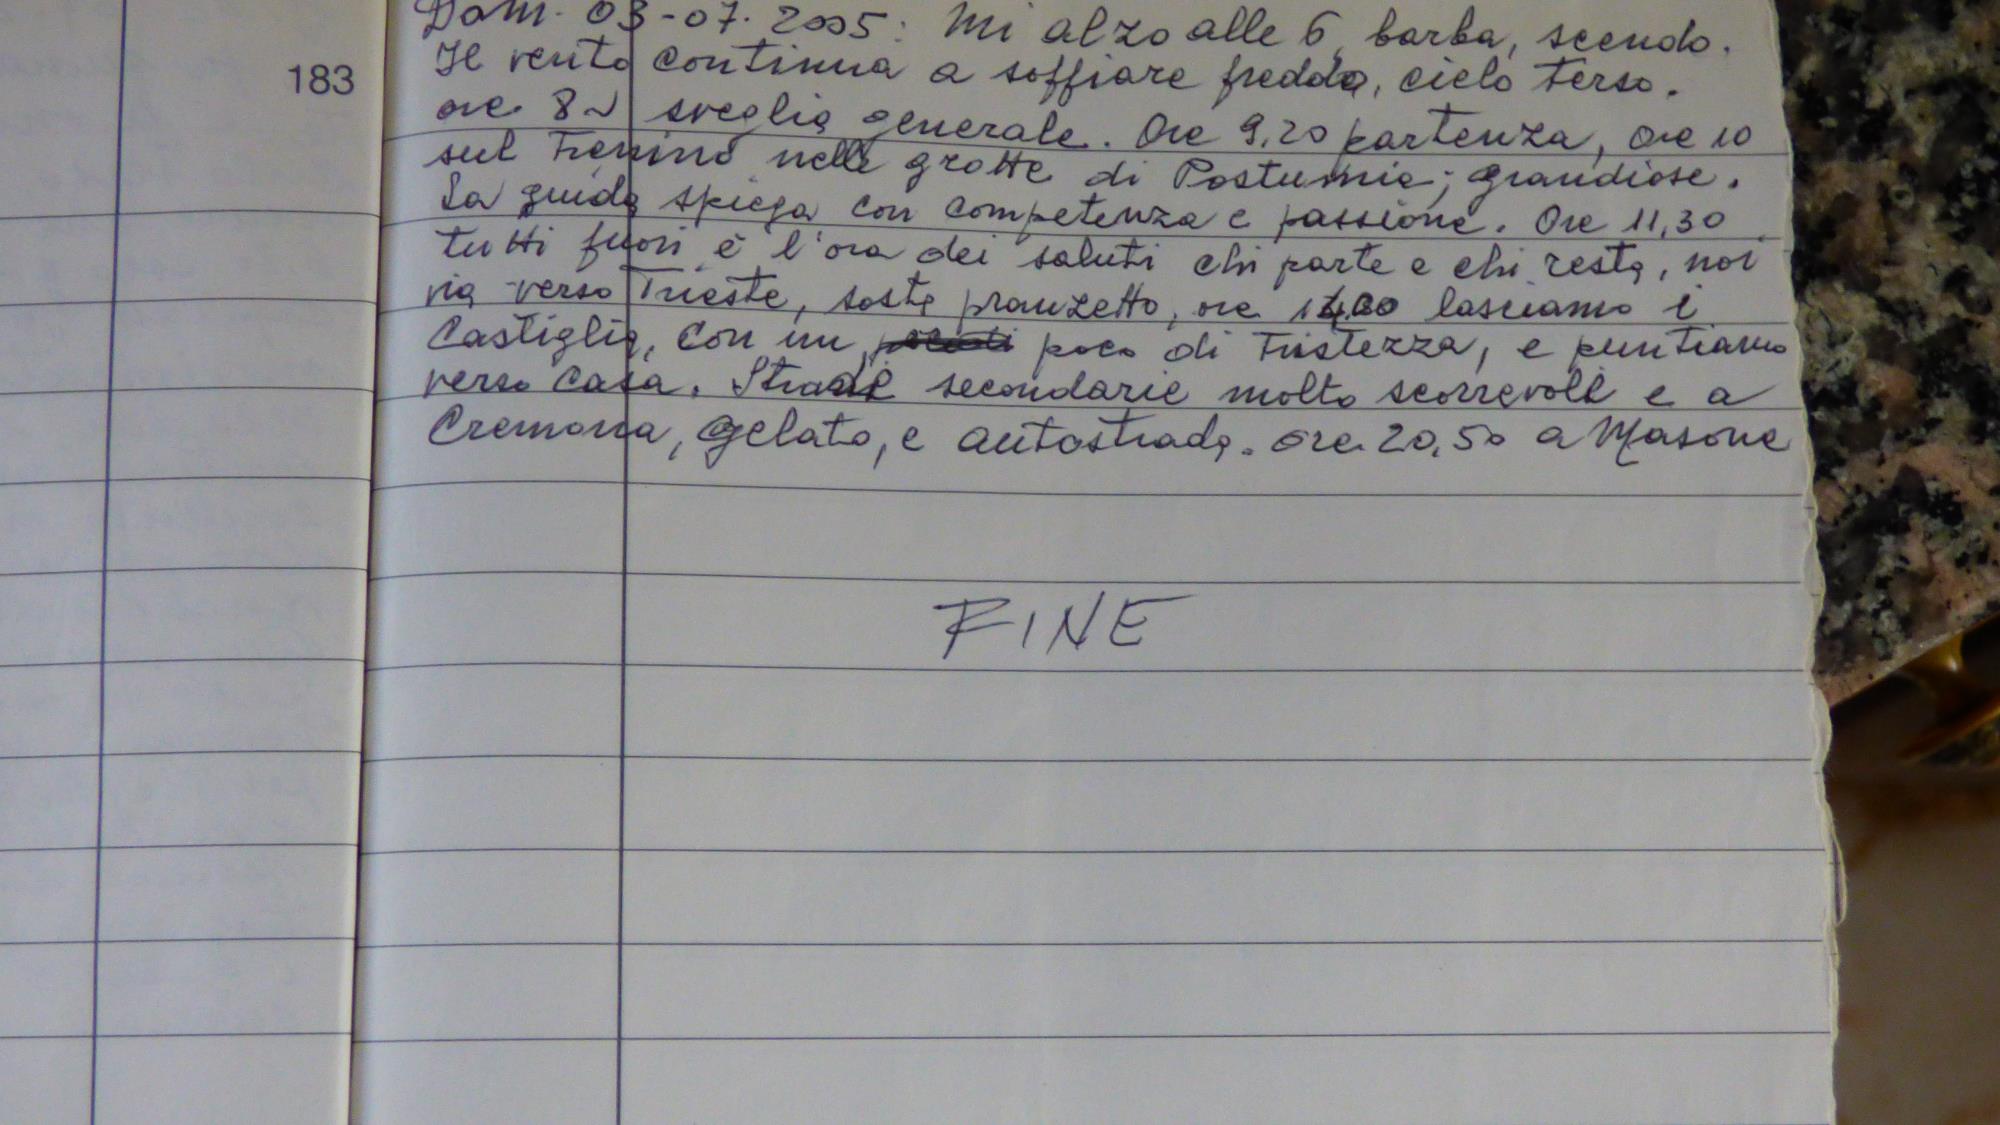 183
Dom. 03-07. 2005: Mi alzo alle 6, barba, scendo.
Il vento continua a soffiare freddo, cielo terso.
ore 8 sveglia generale. Ore 9,20 partenza, ore 10
sul Trenino nelle grotte di Postumia; grandiose.
La guida spiega con competenza e passione. Ore 11,30
tutti fuori è l'ora dei saluti chi parte e chi resta, noi
via verso Trieste, sosta pranzetto, ore lasciamo i
Castiglia, con un poco di Tristezza, e puntiamo
verso casa. Strade secondarie molto scorrevoli e a
Cremona, gelato, e autostrada. ore 20,50 a Masone
FINE